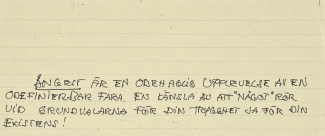 ÅNGEST ÄR EN OBEHAGLIG UPPLEVELSE AV EN
ODEFINIERBAR FARA. EN KÄNSLA AV ATT "NÅGOT" RÖR
VID GRUNDVALARNA FÖR DIN TRYGGHET JA FÖR DIN
EXISTENS!